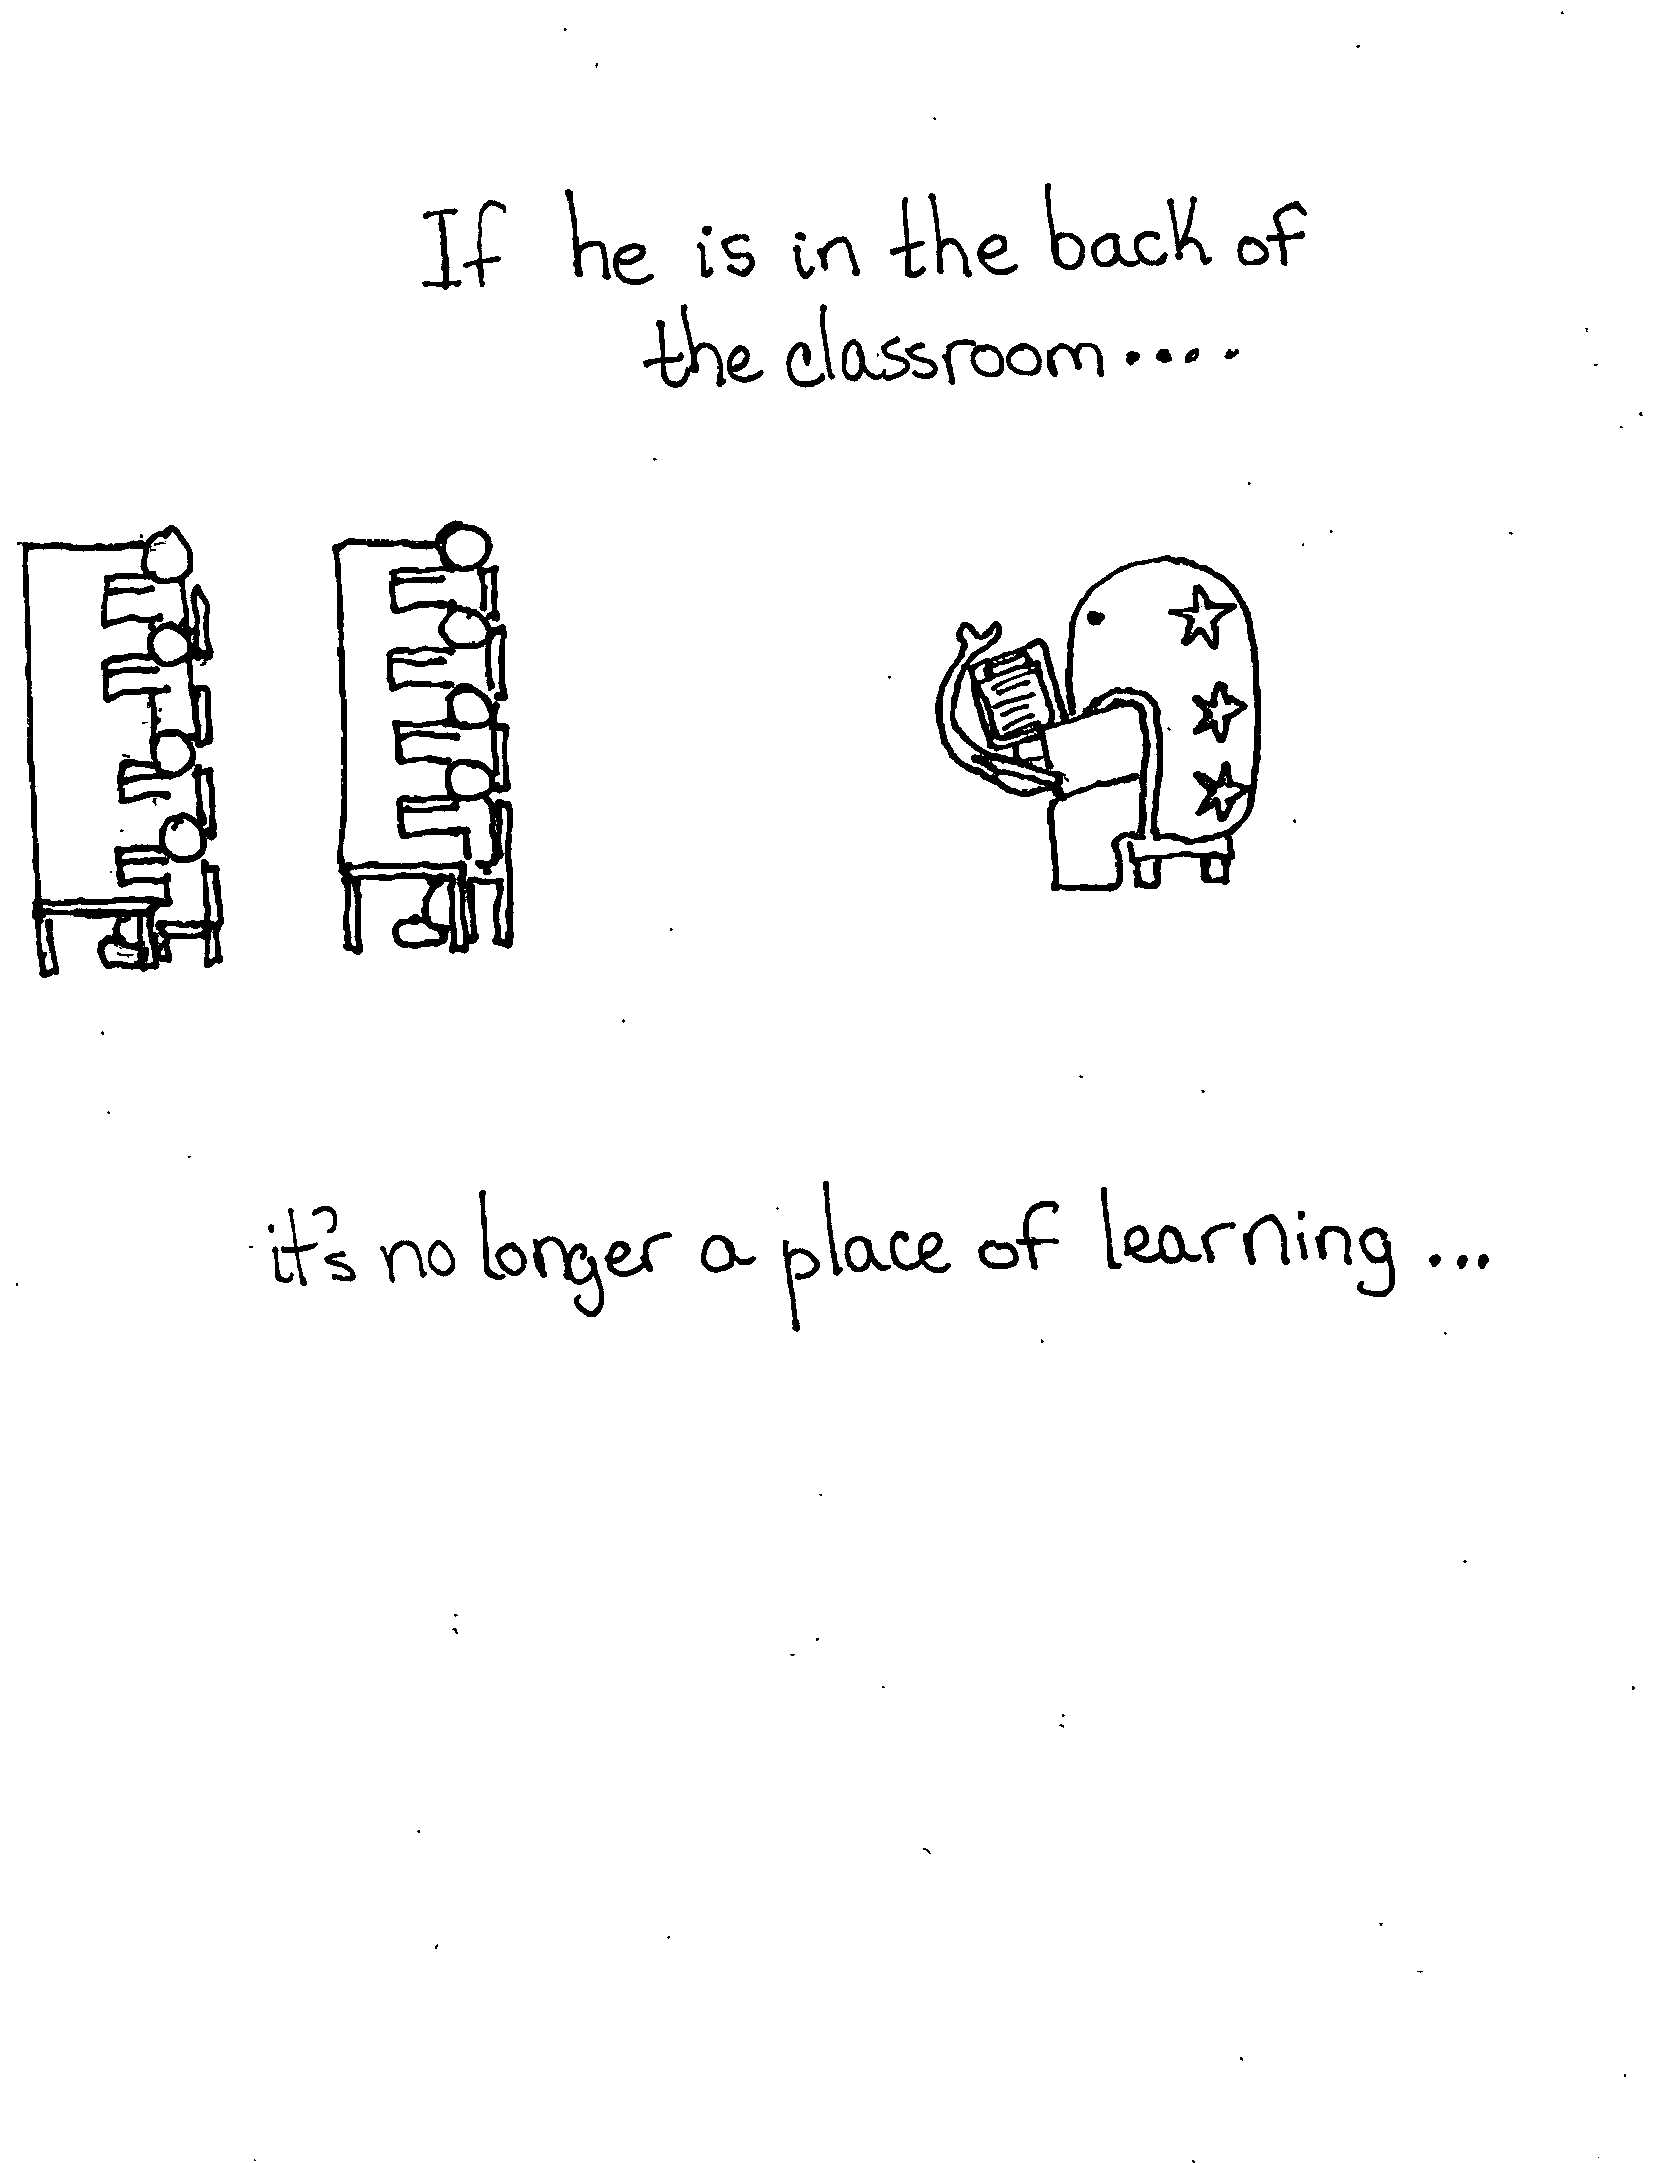 If he is in the back of
the classroom....
it's no longer a place of learning...